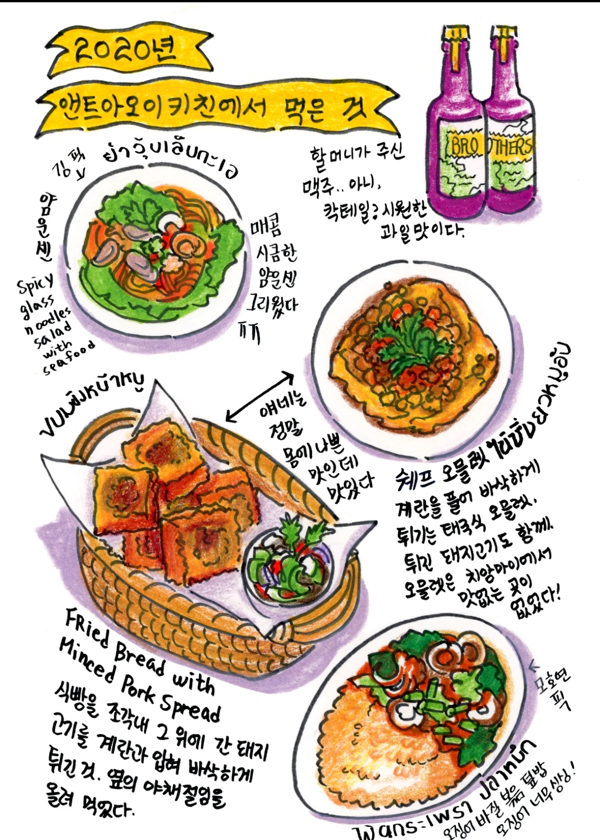 2020년
앤트아오이키친에서 먹은 것
할머니가 주신
맥주.. 아니,
칵테일; 시원한
과일맛이다.
BRO THERS
김 픽
ยำวุ้นเส้นทะเล
얌운센
Spicy
glass
noodles
salad
with
seafood
매콤
시큼한
얌운센
그리웠다
ㅠㅠ
ขนมปังหน้าหมู
얘네는
정말
몸에 나쁜
맛인데
맛있다
쉐프 오믈렛
계란을 풀어 바삭하게
튀기는 태국식 오믈렛.
튀긴 돼지고기도 함께.
오믈렛은 치앙마이에서
맛없는 곳이
없었다!
Fried Bread with
Minced Pork Spread
식빵을 조각내 그 위에 간 돼지
고기를 계란과 입혀 바삭하게
튀긴 것. 옆의 야채절임을
올려 먹었다.
모호연
픽
오징어 바질 볶음 덮밥
오징어 너무 싱싱!